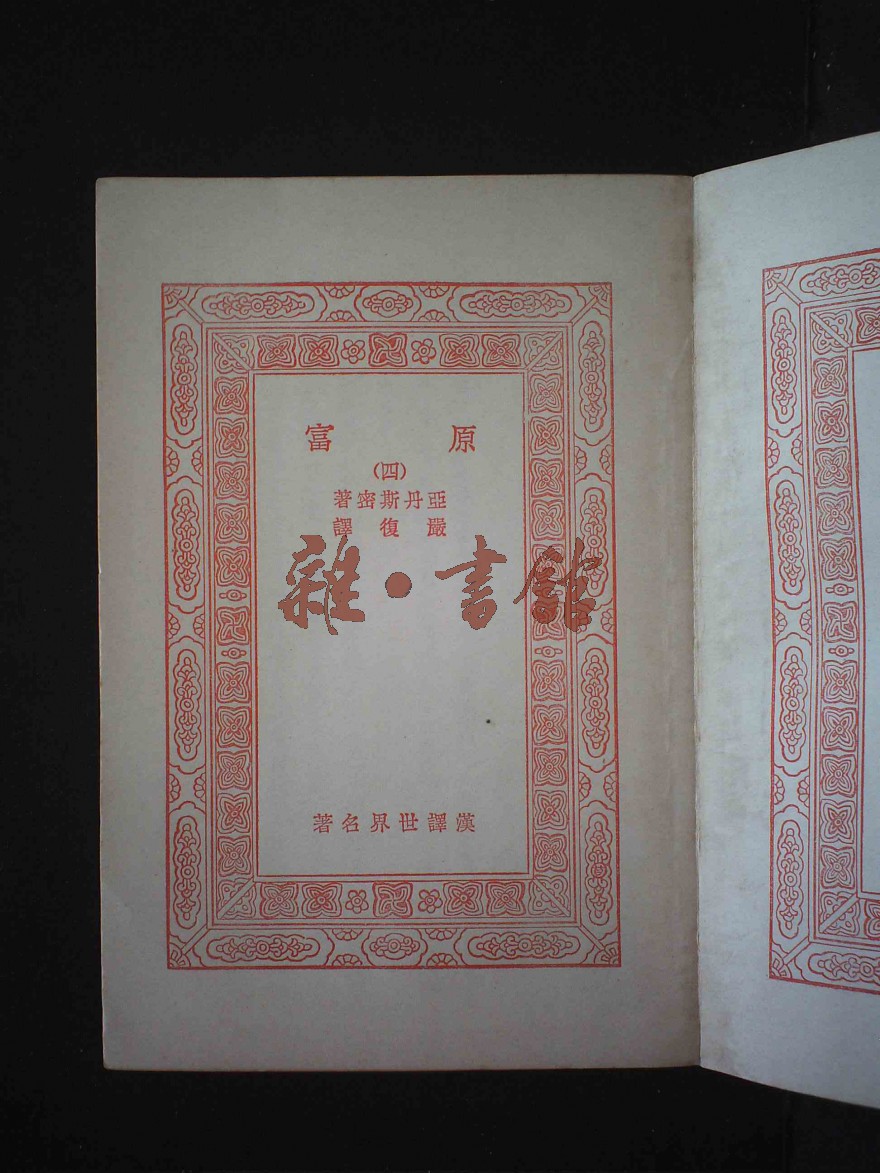 原富
(四)
亞丹斯密著
嚴復譯
雜·書館
漢譯世界名著